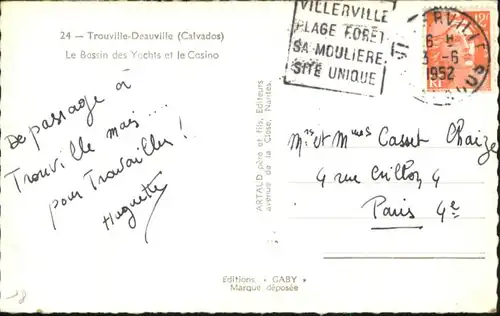 24 — Trouville-Deauville (Calvados)
Le Bassin des Yachts et le Casino
VILLERVILLE
PLAGE FORET
SA MOULIERE
SITE UNIQUE
RVILLE
6 - H
3 -6
1952
12F
RF
De passage à
Trouville mais ....
pour Travailler !
Huguette
ARTAUD père et fils, Editeurs
avenue de la Close, Nantes.
Mrs et Mmes Casset Chaize
4 rue Crillon 4
Paris 4e
Editions "GABY"
Marque déposée